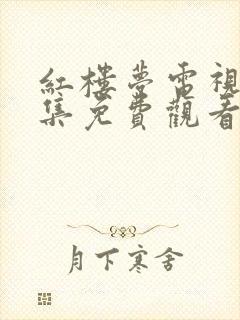 紅樓夢電視
集免費觀看
月下寒舍